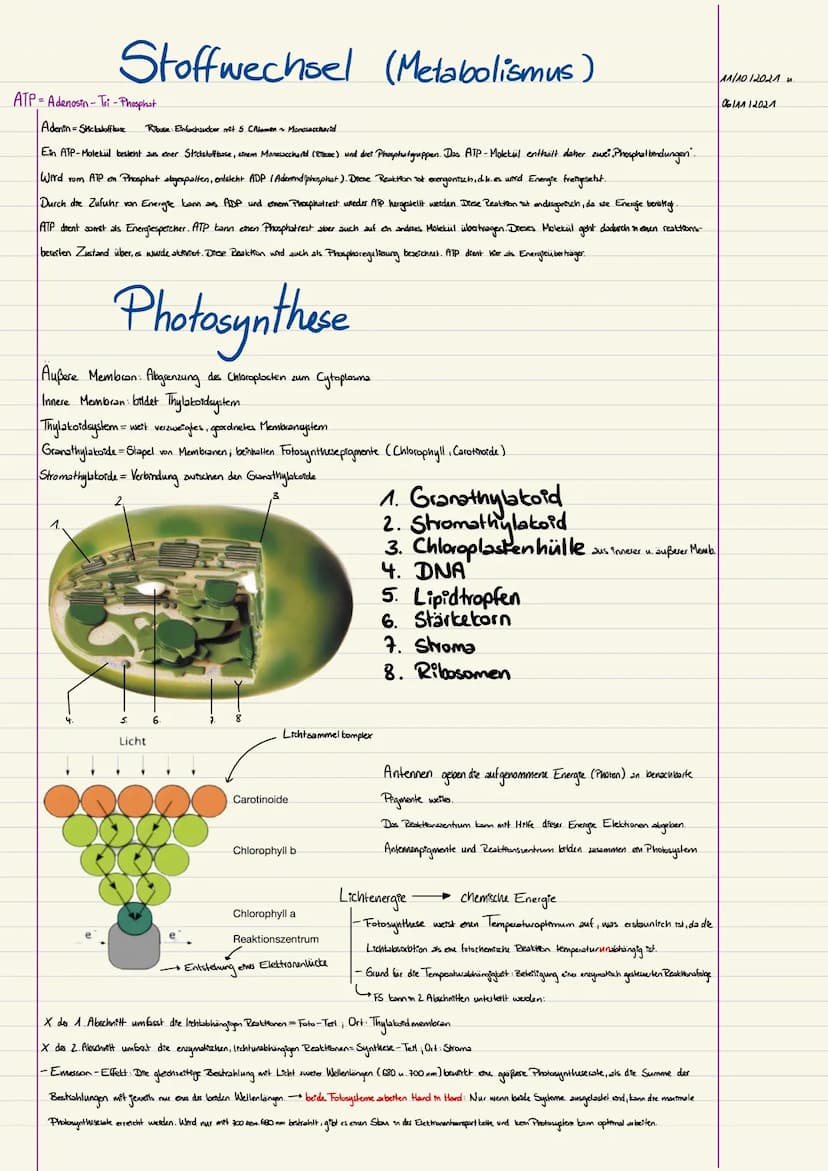 Stoffwechsel (Metabolismus)
11/10/2021 u.
06/11/2021
ATP = Adenosin-Tri-Phosphat
Adenin = Stickstoffbase Ribose: Einfachzucker mit 5 C-Atomen ~ Monosaccharid
Ein ATP-Molekül besteht aus einer Stickstoffbase, einem Monosaccharid (Ribose) und drei Phosphatgruppen. Das ATP-Molekül enthält daher zwei „Phosphatbindungen".
Wird vom ATP ein Phosphat abgespalten, entsteht ADP (Adenindiphosphat). Diese Reaktion ist exergonisch, d.h. es wird Energie freigesetzt.
Durch die Zufuhr von Energie kann aus ADP und einem Phosphatrest wieder ATP hergestellt werden. Diese Reaktion ist endergonisch, da sie Energie benötigt.
ATP dient somit als Energiespeicher. ATP kann einen Phosphatrest aber auch auf ein anderes Molekül übertragen. Dieses Molekül geht dadurch in einen reaktions-
bereiten Zustand über, es wurde aktiviert. Diese Reaktion wird auch als Phosphorylierung bezeichnet. ATP dient hier als Energieüberträger.
Photosynthese
Äußere Membran: Abgrenzung des Chloroplasten zum Cytoplasma
Innere Membran: bildet Thylakoidsystem
Thylakoidsystem = weit verzweigtes, geordnetes Membransystem
Granathylakoide = Stapel von Membranen; beinhalten Fotosynthesepigmente (Chlorophyll, Carotinoide)
Stromathylakoide = Verbindung zwischen den Granathylakoide
1.
2.
3
1. Granathylakoid
2. Stromathylakoid
3. Chloroplastenhülle aus innerer u. äußerer Memb.
4. DNA
5. Lipidtropfen
6. Stärkekorn
7. Stroma
8. Ribosomen
4. 5. 6. 7. 8
Licht
Lichtsammelkomplex
Carotinoide
Chlorophyll b
Chlorophyll a
Reaktionszentrum
e⁻ e⁻
→ Entstehung eines Elektronenlücke
Antennen geben die aufgenommene Energie (Photon) an benachbarte
Pigmente weiter.
Das Reaktionszentrum kann mit Hilfe dieser Energie Elektronen abgeben.
Antennenpigmente und Reaktionszentrum bilden zusammen ein Photosystem
Lichtenergie → chemische Energie
- Fotosynthese weist einen Temperaturoptimum auf, was erstaunlich ist, da die
Lichtabsorbtion als eine fotochemische Reaktion temperaturunabhängig ist.
- Grund für die Temperaturabhängigkeit: Beteiligung einer enzymatisch gesteuerten Reaktionsfolge
→ FS kann in 2 Abschnitten unterteilt werden:
X der 1. Abschnitt umfasst die lichtabhängigen Reaktionen = Foto-Teil; Ort: Thylakoidmembran
X der 2. Abschnitt umfasst die enzymatischen, lichtunabhängigen Reaktionen = Synthese-Teil, Ort: Stroma
- Emerson-Effekt: Die gleichzeitige Bestrahlung mit Licht zweier Wellenlängen (680 u. 700 nm) bewirkt eine größere Photosyntheserate, als die Summe der
Bestrahlungen mit jeweils nur eins der beiden Wellenlängen → beide Fotosysteme arbeiten Hand in Hand: Nur wenn beide Systeme ausgelastet sind, kann die maximale
Photosyntheserate erreicht werden. Wird nur mit 680 nm bestrahlt, gibt es einen Stau in der Elektronentransportkette und kein Photosystem kann optimal arbeiten.